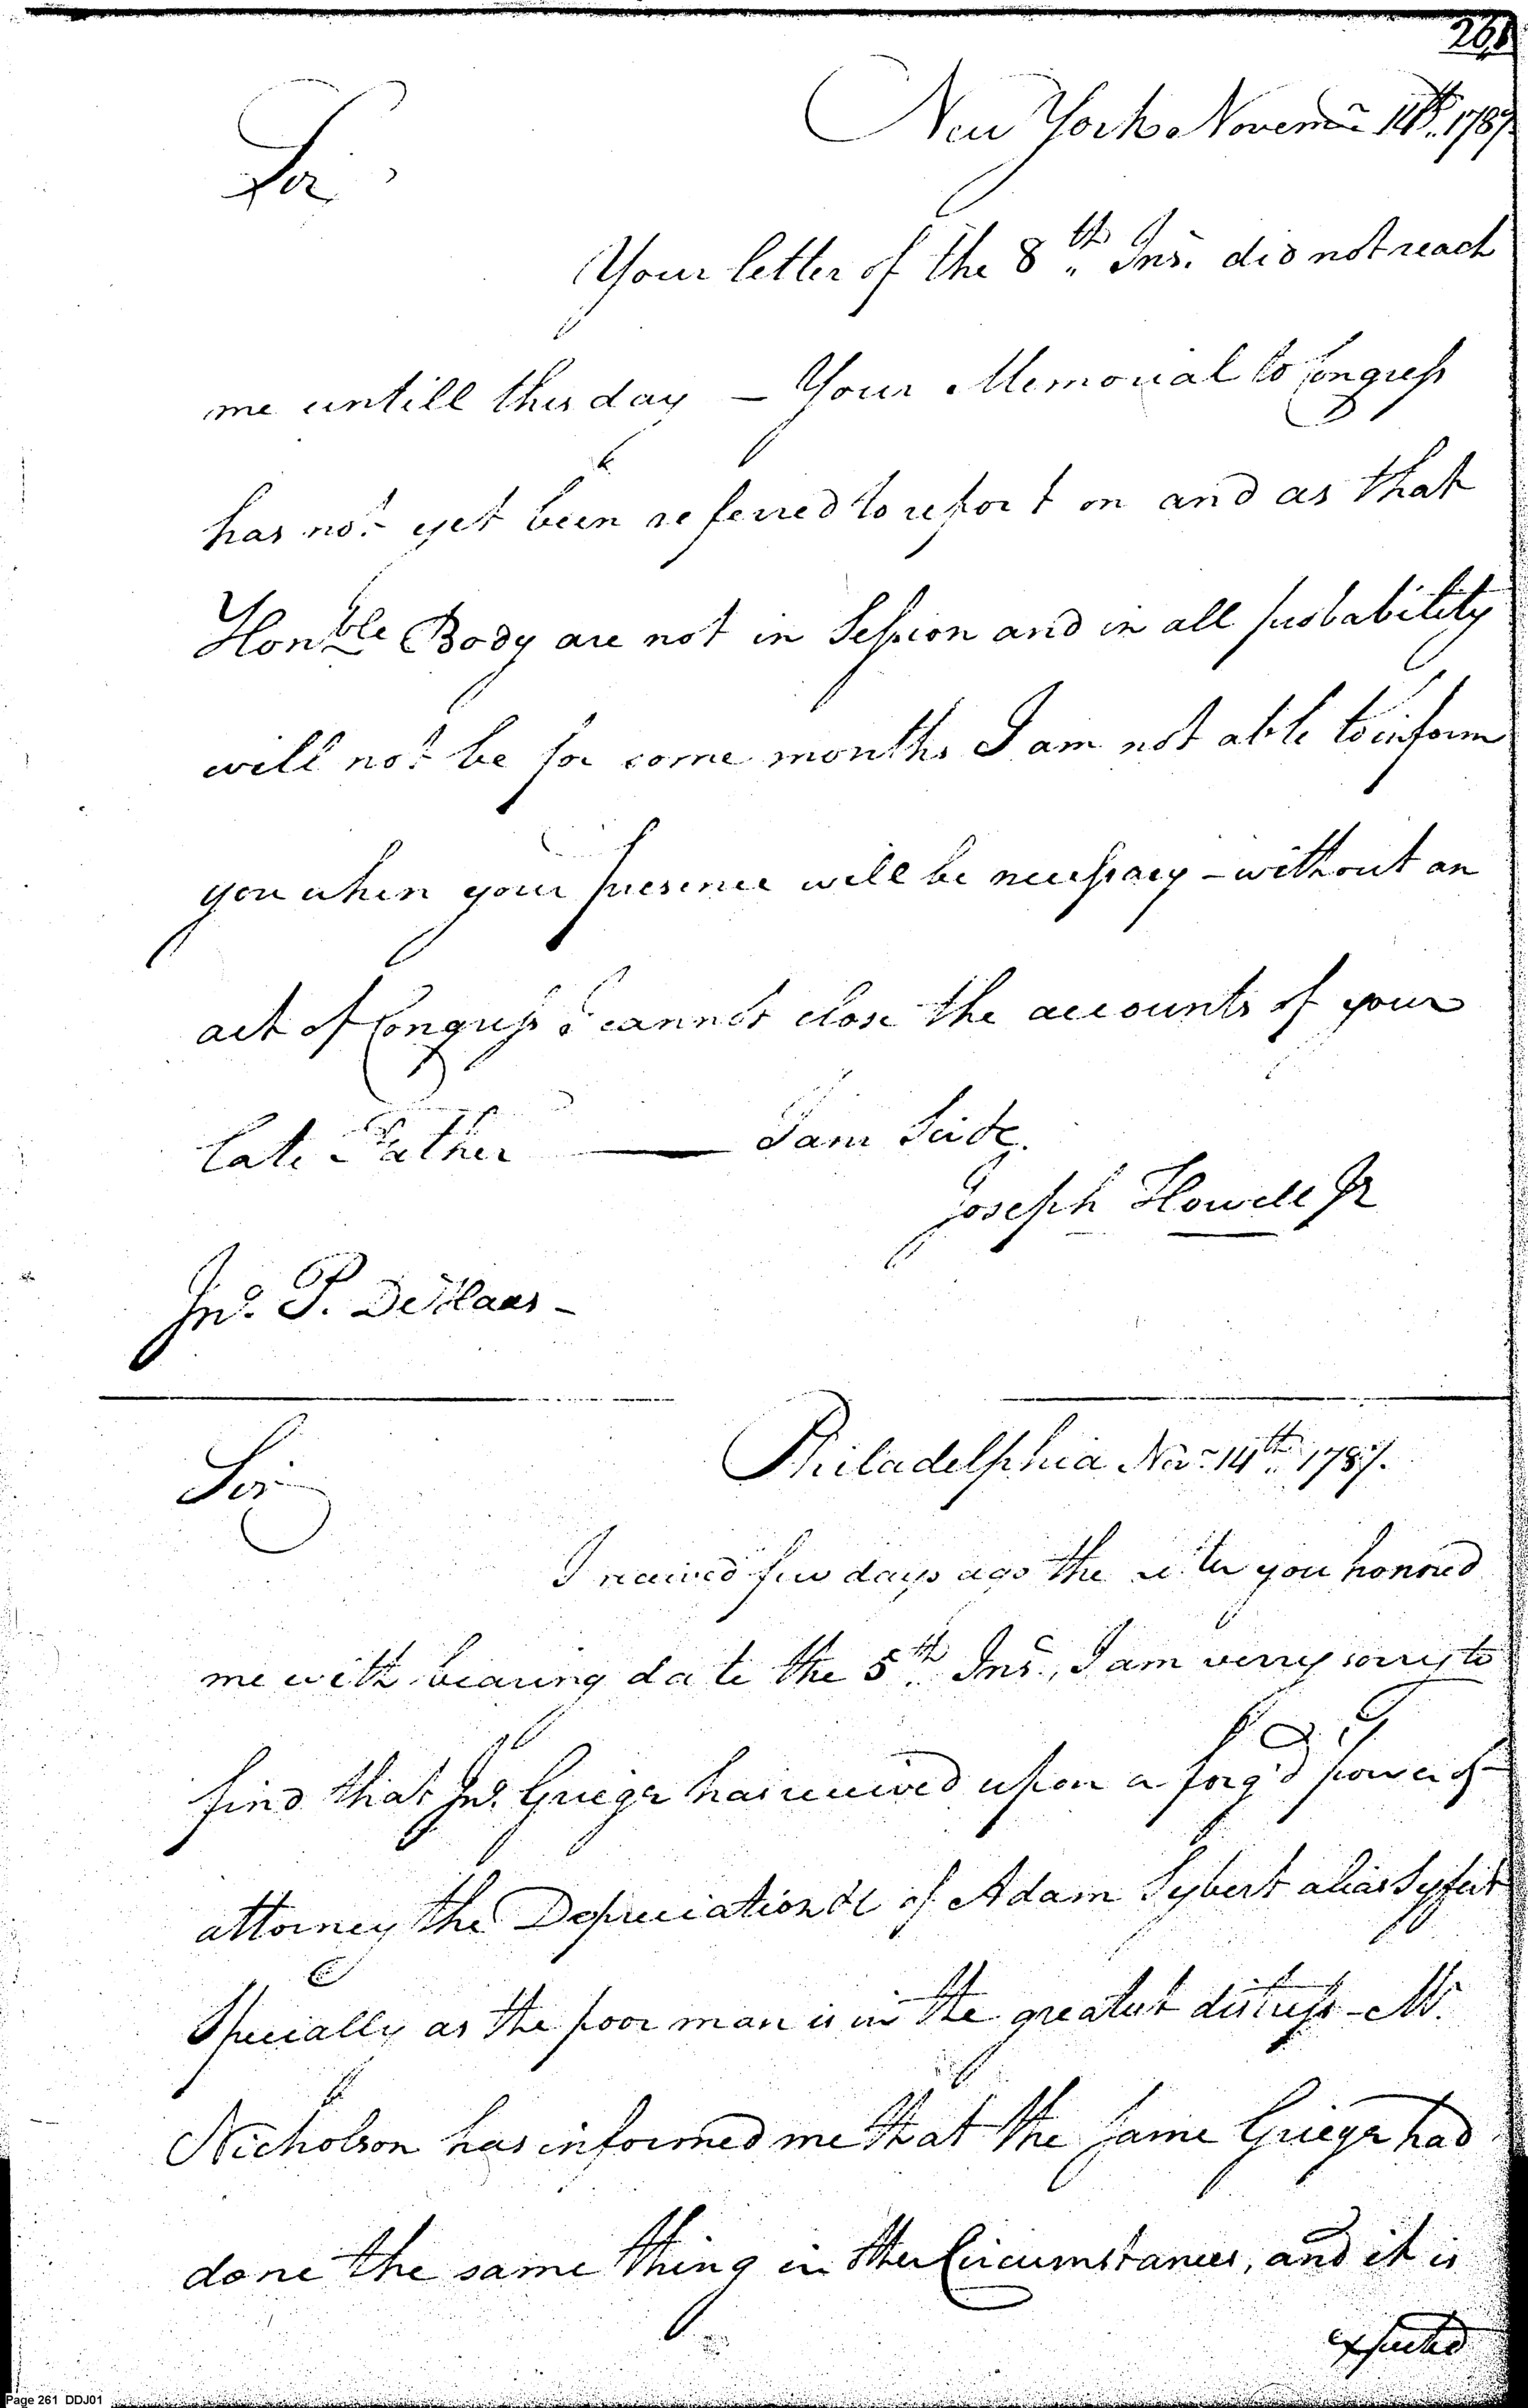 261
New York Novemr 14th. 1787
Sir,
Your letter of the 8th. Inst. did not reach
me untill this day — Your Memorial to Congress
has not yet been referred to report on and as that
Honble Body are not in Session and in all probability
will not be for some months I am not able to inform
you when your presence will be necessary - without an
act of Congress I cannot close the accounts of your
late Father —— I am Sir &c.
Joseph Howell Jr
Jno. P. De Haas -
Philadelphia Novr 14th. 1787.
Sir
I received few days ago the letter you honored
me with bearing date the 5th. Inst., I am verry sorry to
find that Jno. Grieger has received upon a forg'd power of
attorney the Depreciation &c of Adam Sybert alias Syfert
Specially as the poor man is in the greatest distress - Mr.
Nicholson has informed me that the Same Grieger had
done the same thing in other Circumstances, and it is
expected
Page 261 DDJ01